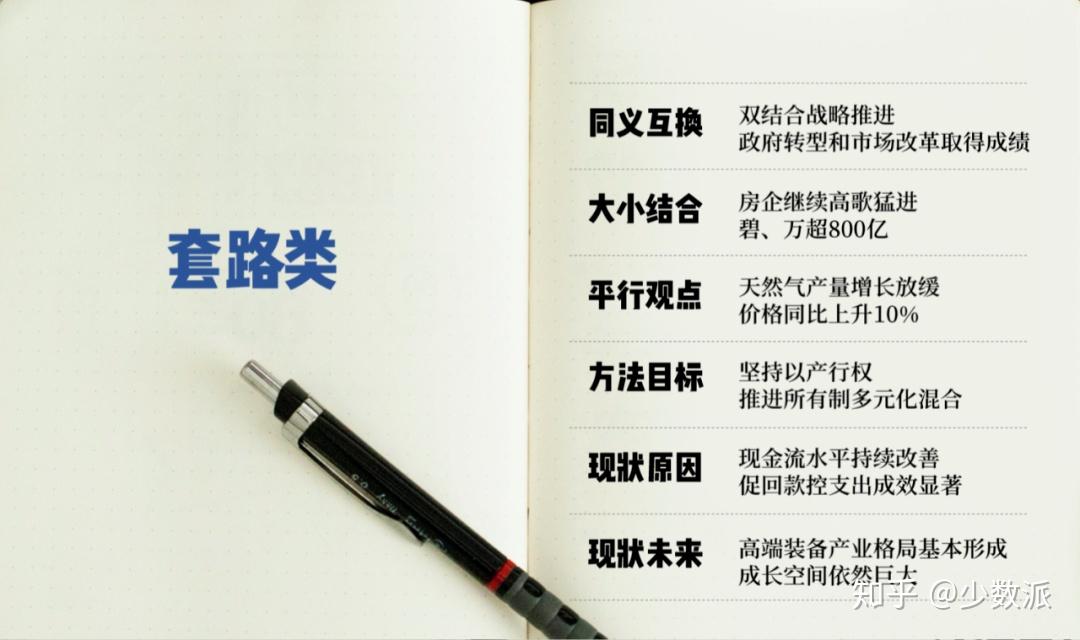 套路类
同义互換
双结合战略推进
政府转型和市场改革取得成绩
大小结合
房企继续高歌猛进
碧、万超800亿
平行观点
天然气产量增长放缓
价格同比上升10%
方法目标
坚持以产行权
推进所有制多元化混合
现狀原因
现金流水平持续改善
促回款控支出成效显著
现狀未来
高端装备产业格局基本形成
成长空间依然巨大
知乎 @少数派